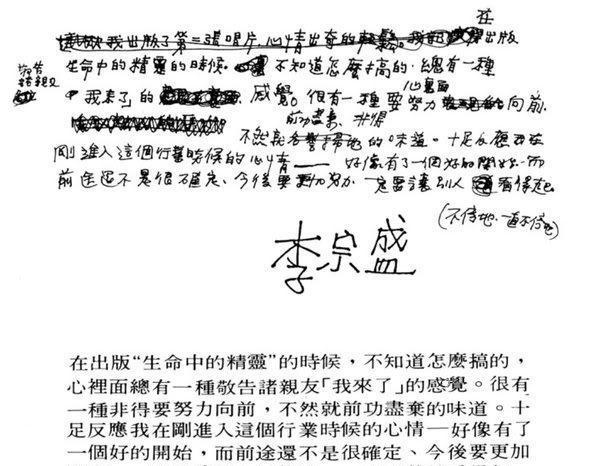 在
我出版了第二張唱片.心情出奇的輕鬆。我把 出版
生命中的精靈的時候. 不知道怎麼搞的.總有一種
敬告
諸親友
「我來了」的 感覺。很有一種要努力 向前.
心裡面
前功盡棄. 非得
不然就 的味道。十足反應
剛進入這個行業時候的心情——好像有了一個好的開始.而
前途還不是很確定、今後要更加努力 一定要讓別人 看得起.
(不信地.
李宗盛
在出版“生命中的精靈”的時候，不知道怎麼搞的，
心裡面總有一種敬告諸親友「我來了」的感覺。很有
一種非得要努力向前，不然就前功盡棄的味道。十
足反應我在剛進入這個行業時候的心情—好像有了
一個好的開始，而前途還不是很確定、今後要更加